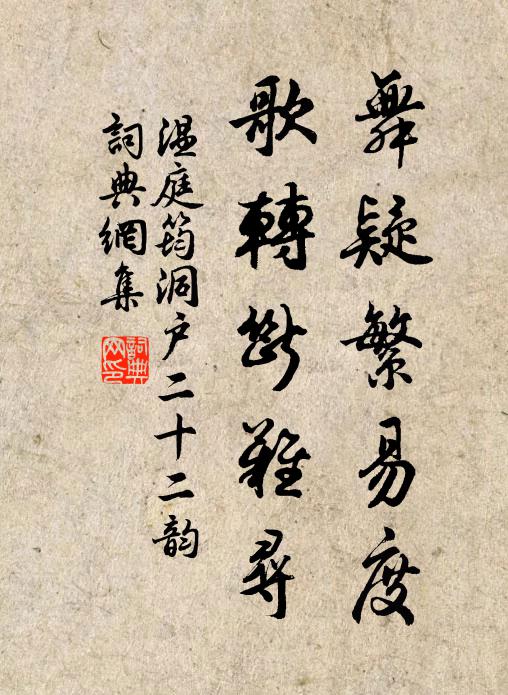 舞疑繁易度
歌轉斷難尋
溫庭筠洞户二十二韵
詞典網集
詞典網印